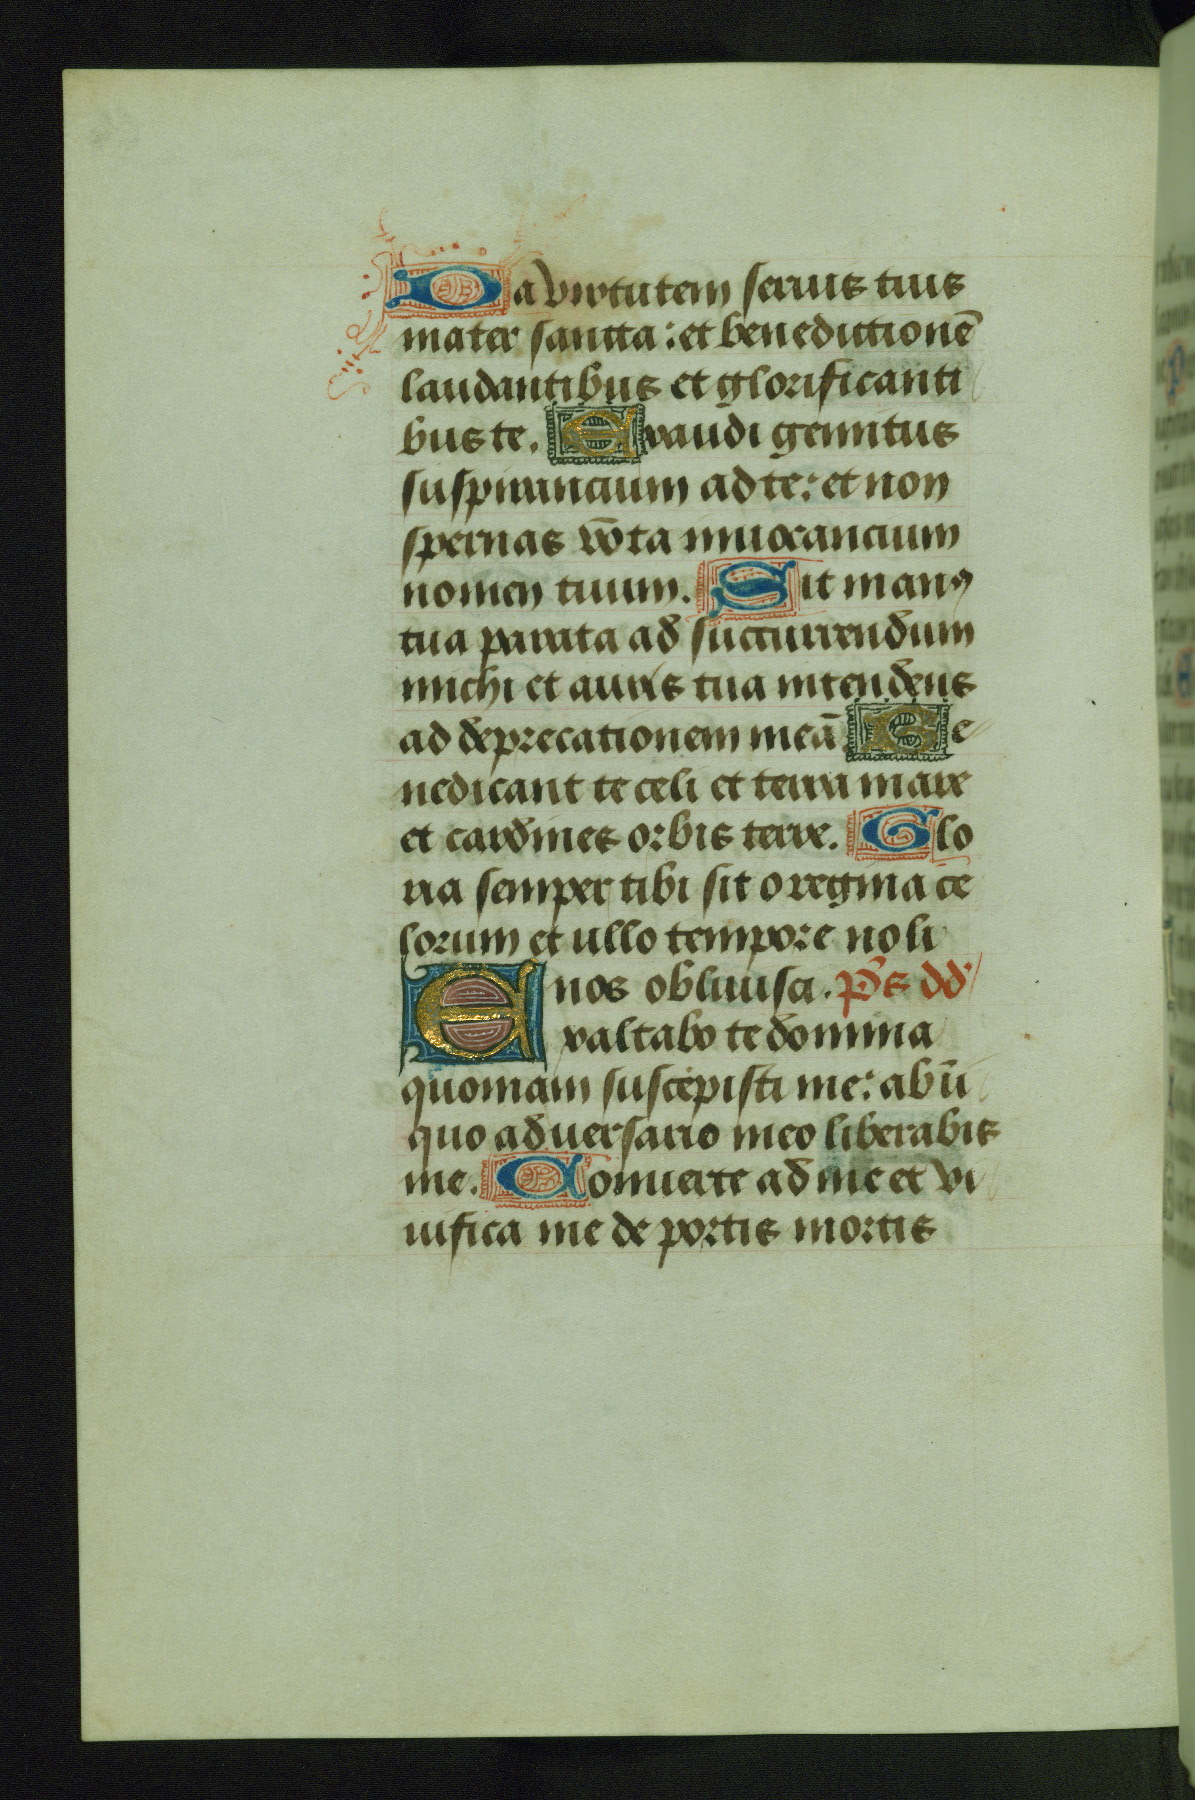 Da virtutem seruis tuis
mater sancta: et benedictionē
laudantibus et glorificanti
bus te. Exaudi gemitus
suspirancium ad te: et non
spernas vōta inuocancium
nomen tuum. Sit manꝰ
tua parata ad succurrendum
michi et auris tua intendens
ad deprecationem meā Be
nedicant te celi et terra mare
et cardines orbis terre. Glo
ria semper tibi sit o regina ce
lorum et ullo tempore noli
nos obliuisci. p̄s dd
Exaltabo te domina
quoniam suscepisti me: ab in̄
quo aduersario meo liberabis
me. Conuerte ad me et vi
uifica me de portis mortis